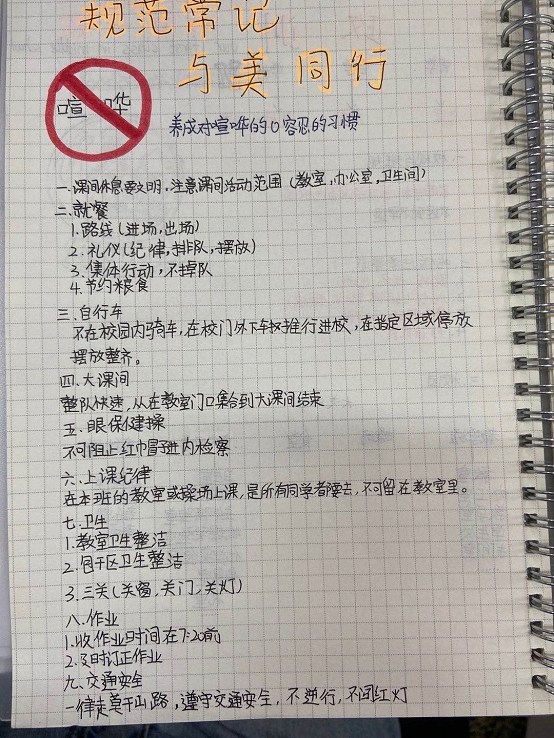 规范常记
与美同行
喧哗
养成对喧哗的0容忍的习惯
一.课间休息要文明,注意课间活动范围(教室,办公室,卫生间)
二.就餐
1.路线(进场,出场)
2.礼仪(纪律,排队,摆放)
3.集体行动,不掉队
4.节约粮食
三.自行车
不在校园内骑车,在校门外下车推行进校,在指定区域停放
摆放整齐。
四.大课间
整队快速,从在教室门口集合到大课间结束
五.眼保健操
不可阻止红巾冒进内检察
六.上课纪律
在本班的教室或操场上课,是所有同学都要去,不可留在教室里。
七.卫生
1.教室卫生整洁
2.包干区卫生整洁
3.三关(关窗,关门,关灯)
八.作业
1.收作业时间在7:20前
2.及时订正作业
九.交通安全
一律走莫干山路,遵守交通安全,不逆行,不闯红灯